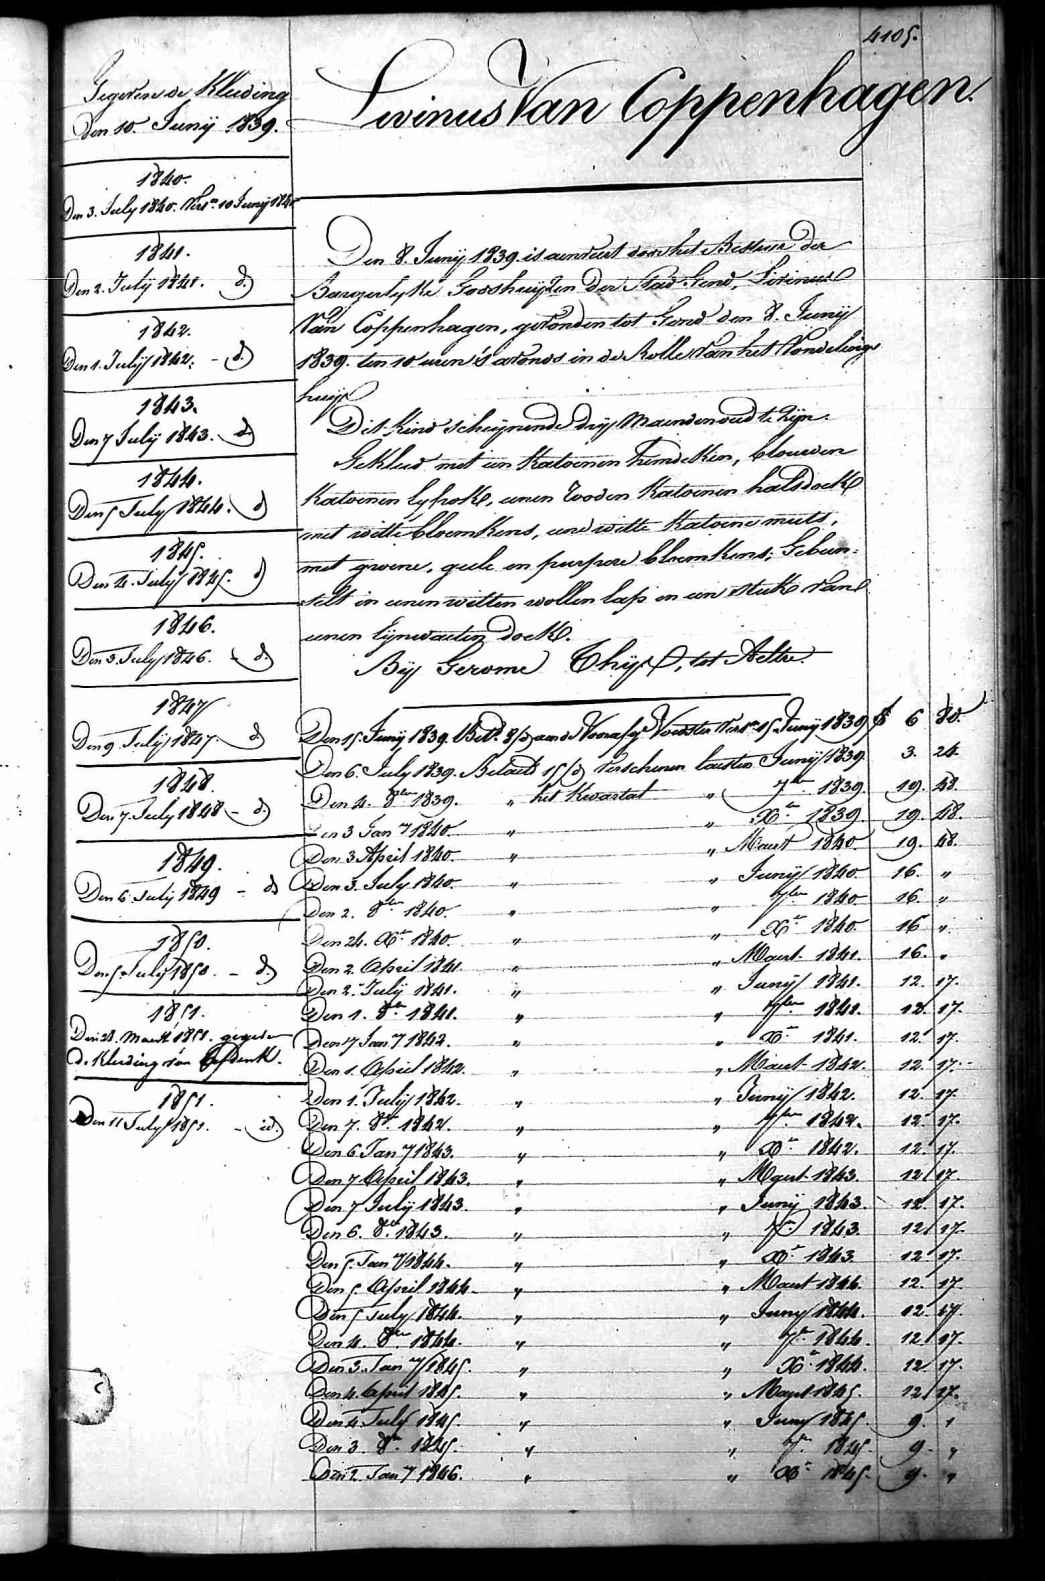 4105.
Livinus Van Coppenhagen.
Gegeven de Kleeding
Den 10. Junij 1839.
1840.
Den 3. July 1840. Vers.n 10 Junij 1840
1841.
Den 2. July 1841. d.)
1842.
Den 1. July 1842. - d.)
1843.
Den 7 July 1843. d)
1844.
Den 5 July 1844. d)
1845.
Den 4. July 1845. d)
1846.
Den 3. July 1846. - d)
1847
Den 9. July 1847. d)
1848.
Den 7. July 1848 - d.)
1849.
Den 6 July 1849 - d)
1850.
Den 5. July 1850. - d)
1851.
Den 28. Maart 1851. gegeven
d. Kleeding van
1851.
Den 11 July 1851. - d.)
Den 8. Junij 1839 is aenveert door het Bestuur der
Godshuijzen der Stad Gend, Livinus
Van Coppenhagen, gevonden tot Gend den 8. Junij
1839. ten 10 uren 's avonds in de Rolle van het Vondelings
huijs
Dit kind scheijnende drij Maenden oud te zijn.
Gekleed met een katoenen hemdeken, blauwen
katoenen lyfrok, eenen rooden katoenen halsdoek
met witte bloemkens, eene witte katoene muts,
met groene, geele en purpere bloemkens; Gebun=
delt in eenen witten wollen lap en een stuk van
eenen lijnwaeten doek.
Bij Gerome Thijs, tot Aeltre.
Den 15. Junij 1839. Junij 1839 f 6 80.
Den 6. July 1839. Betaelt verschenen laesten Junij 1839. 3. 24
Den 4. 8ber 1839. " het Kwartael " 7ber 1839. 19. 48.
Den 3 Jany 1840. " " Xr 1839. 19. 48.
Den 3 April 1840. " " Maert 1840. 19. 48.
Den 3. July 1840. " " Junij 1840 16. "
Den 2. 8ber 1840. " " 7ber 1840 16. "
Den 24. Xr 1840. " " Xr 1840. 16 "
Den 2. April 1841. " " Maert 1841. 16. "
Den 2. July 1841. " " Junij 1841. 12. 17.
Den 1. 8ber 1841. " " 7ber 1841. 12. 17.
Den 7 Jany 1842. " " Xr 1841. 12. 17.
Den 1. April 1842. " " Maert 1842. 12. 17.
Den 1. July 1842. " " Junij 1842. 12. 17.
Den 7. 8r 1842. " " 7ber 1842. 12. 17.
Den 6 Jany 1843. " " Xr 1842. 12. 17.
Den 7 April 1843. " " Maert 1843. 12. 17.
Den 7 July 1843. " " Junij 1843. 12. 17.
Den 6. 8r 1843. " " 7r 1843. 12. 17.
Den 5. Jany 1844. " " Xr 1843. 12. 17.
Den 5. April 1844. " " Maert 1844. 12. 17.
Den 5 July 1844. " " Juny 1844. 12. 17.
Den 4. 8ber 1844. " " 7r 1844. 12. 17.
Den 3. Jany 1845. " " Xr 1844. 12. 17.
Den 4. April 1845. " " Maert 1845. 12. 17.
Den 4 July 1845. " " Juny 1845. 9. "
Den 3. 8r 1845. " " 7r 1845. 9. "
Den 2. Jany 1846. " " Xr 1845. 9. "